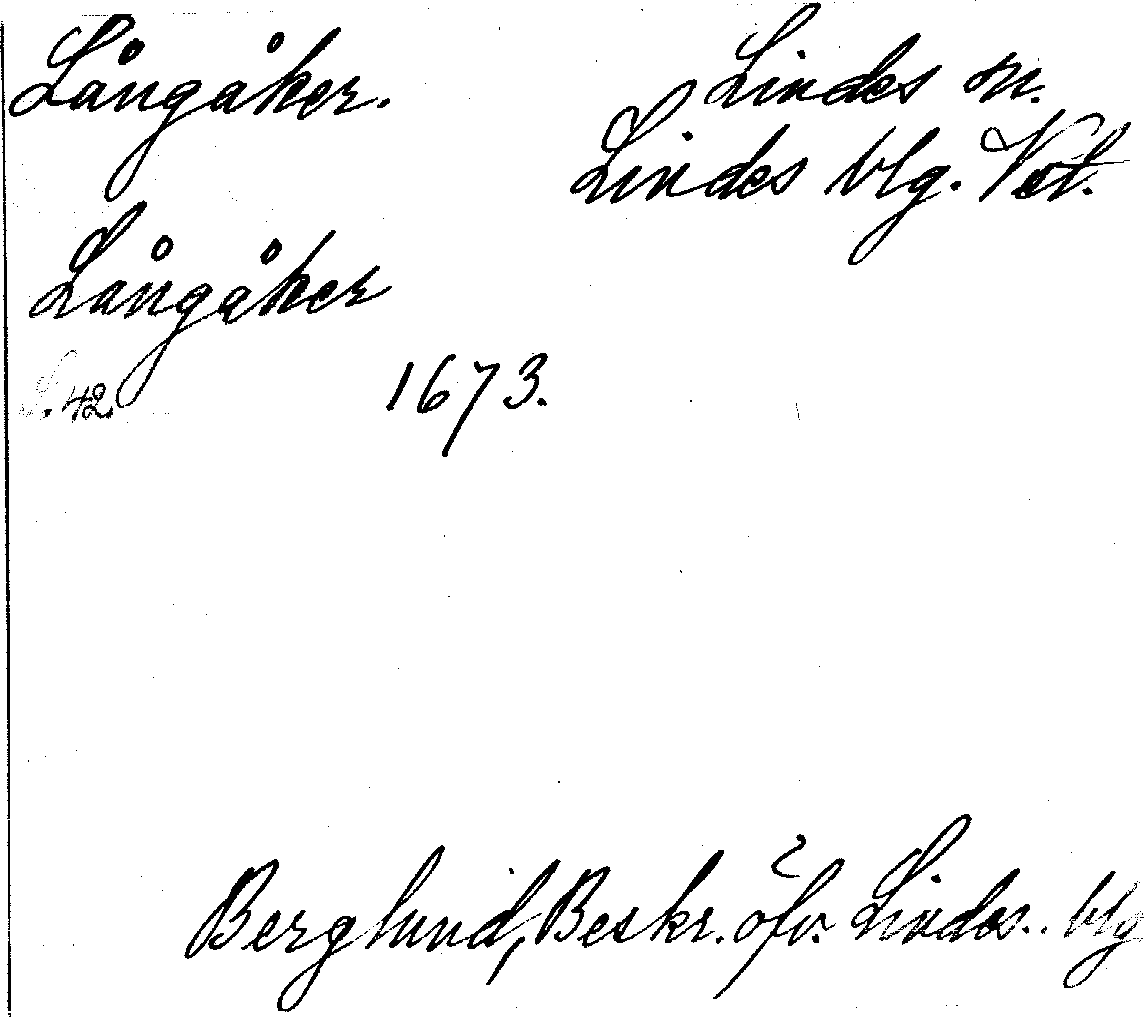 Långåker. Lindes sn.
Lindes blg. Vstl.
Långåker
S. 42. 1673.
Berglund, Beskr. öfv. Lindes.. blg